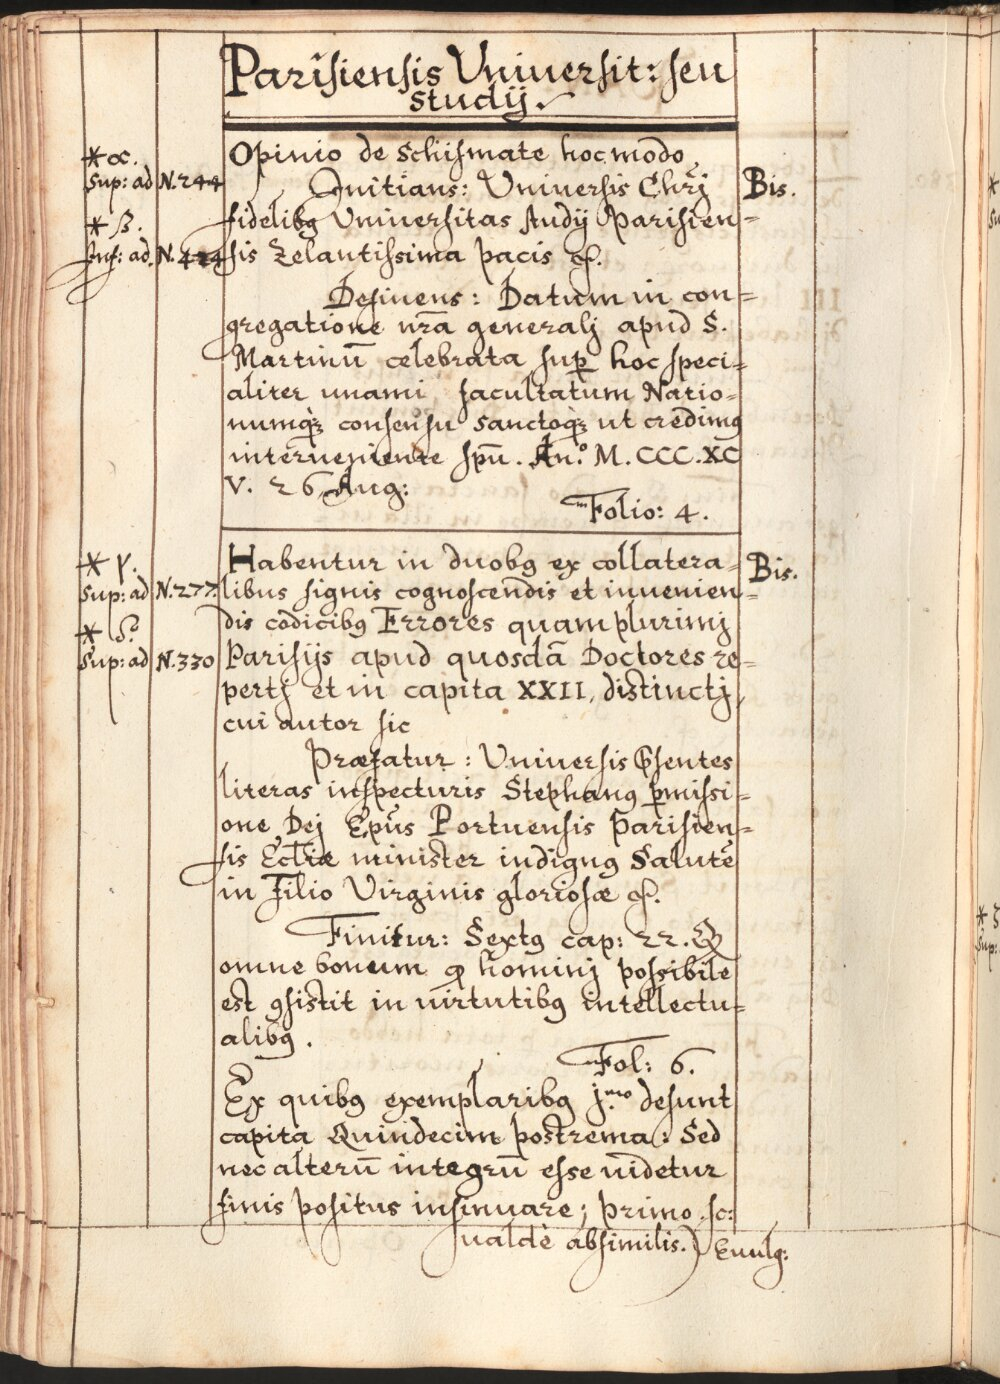 Parisiensis Vniuersit: seu
studij.
*α.
Sup: ad N. 244
* β.
Inf: ad. N. 424
Opinio de Schismate hoc modo
Initians: Vniuersis Chrj̃
fidelibꝰ Vniuersitas studij Parisien=
sis zelantissima pacis &.
Desinens: Datum in con=
gregatione nr̃a generalj apud S.
Martinũ celebrata sup̱ hoc speci=
aliter unami facultatum Natio=
numq; consensu sanctoq; ut credimꝰ
interueniente spũ. An.º M.CCC.XC
V. 26 Aug:
Folio: 4.
Bis.
* γ.
Sup: ad N. 277.
* δ.
Sup: ad N. 330
Habentur in duobꝰ ex collatera=
libus signis cognoscendis et inuenien=
dis codicibꝰ Errores quam plurimj
Parisijs apud quosdã Doctores re=
pertj et in capita XXII, distinctj,
cui autor sic
Præfatur: Vniuersis p̃sentes
literas inspecturis Stephanꝰ ꝑmissi=
one Dej Ep̃us Portuensis Parisien=
sis Eccl̃iæ minister indignꝰ Salutẽ
in Filio Virginis gloriosæ &.
Finitur: Sextꝰ cap: 22. Q̃
omne bonum ꝙ hominj possibile
est ꝯsistit in uirtutibꝰ intellectu=
alibꝰ.
Fol: 6.
Ex quibꝰ exemplaribꝰ j.mo desunt
capita Quindecim postrema: Sed
nec alterũ integrũ esse uidetur
finis positus insinuare; primo sc:
ualdè absimilis.) Euulg:
Bis.